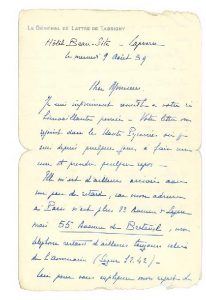 LE GÉNÉRAL DE LATTRE DE TASSIGNY
Hôtel Beau-Site -
le mercredi 9 Août 39
Cher Monsieur
Je suis infiniment
Votre lettre me
rejoint dans les Hautes Pyrénées où je
suis depuis quelques jours, à faire une
cure et prendre quelque repos -
Elle m'est d'ailleurs arrivée avec
un peu de retard, car mon adresse
à Paris n'est plus 83 Avenue
mais 55 Avenue de Breteuil, mon
téléphone restant d'ailleurs toujours celui
de l'annuaire (Ségur 52.42) -
pour vous expliquer mon